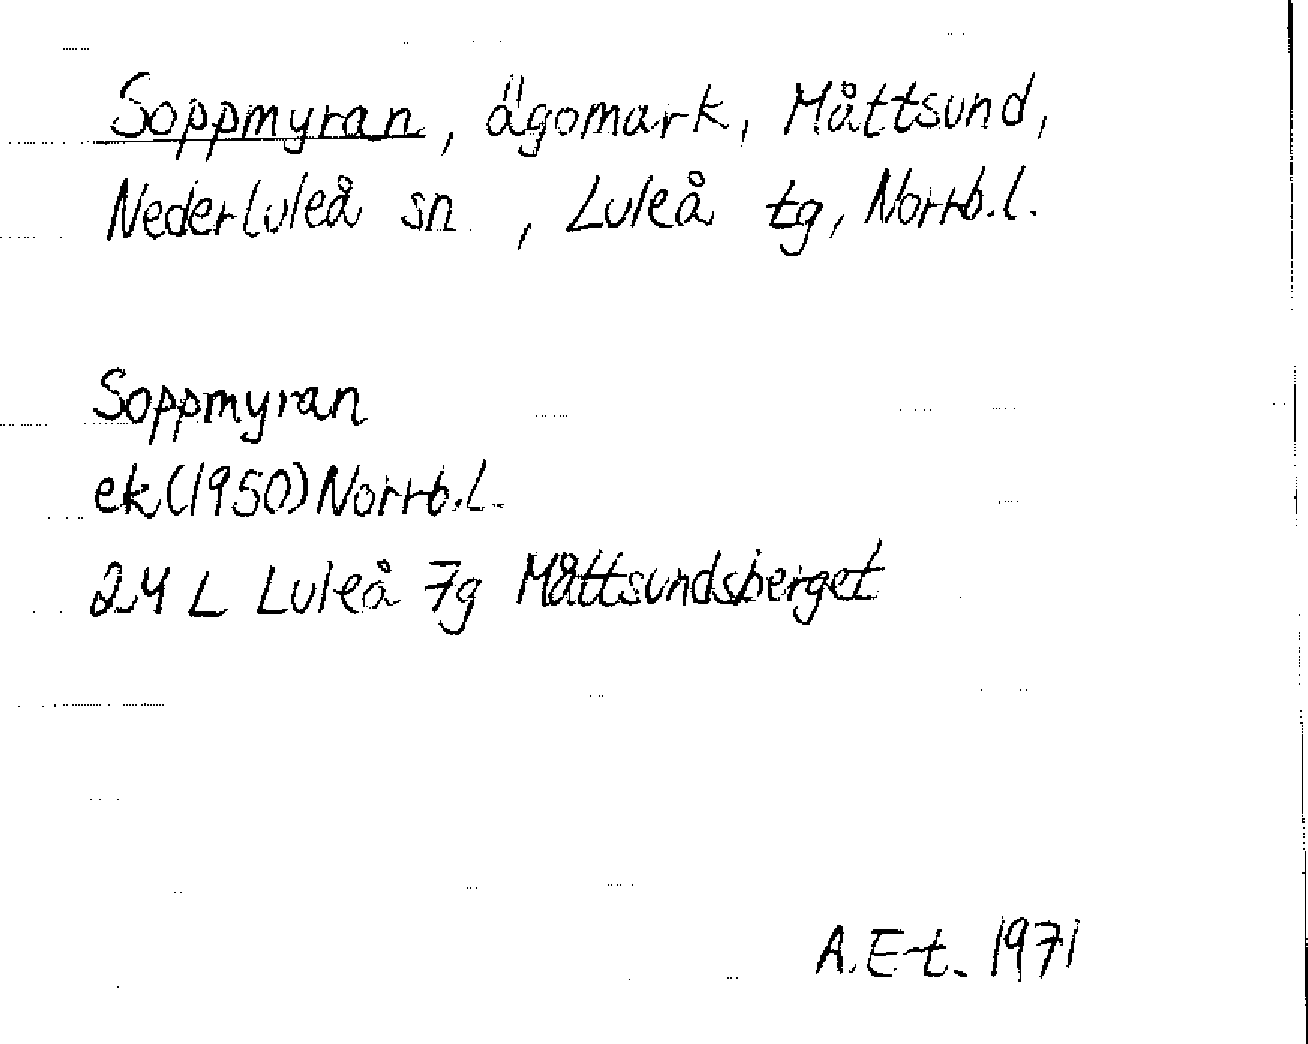 Soppmyran, ägomark, Måttsund,
Nederluleå sn, Luleå tg, Norrb.l.
Soppmyran
ek(1950) Norrb.l.
24 L Luleå 7g Måttsundsberget
A.E-t. 1971